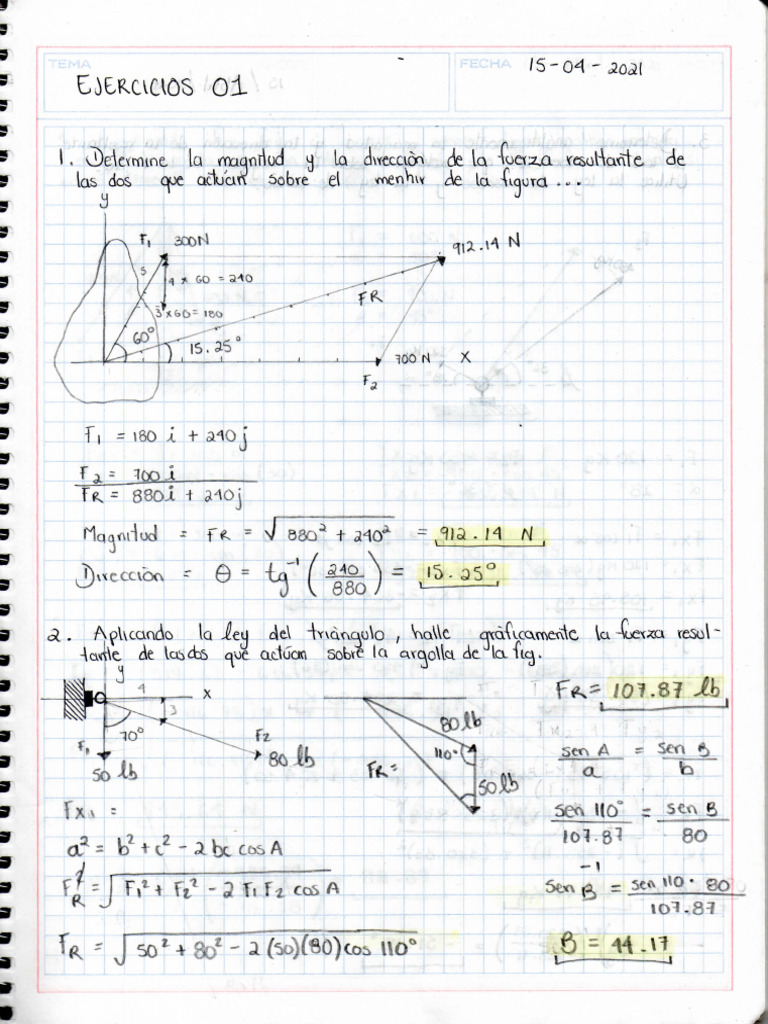 TEMA
EJERCICIOS 01
FECHA 15-04-2021
1. Determine la magnitud y la dirección de la fuerza resultante de
las dos que actúan sobre el menhir de la figura...
y
F1 300N
5
4 x 60 = 240
3 x 60 = 180
60°
15.25°
FR
912.14 N
700 N
x
F2
F1 = 180 i + 240j
F2 = 700 i
FR = 880i + 240j
Magnitud = FR = √880² + 240² = 912.14 N
Dirección = θ = tg⁻¹ (240/880) = 15.25°
2. Aplicando la ley del triángulo, halle gráficamente la fuerza resul-
tante de las dos que actúan sobre la argolla de la fig.
y
4
x
3
70°
F1
50 lb
F2
80 lb
80 lb
110°
FR=
50 lb
FR = 107.87 lb
sen A / a = sen B / b
sen 110° / 107.87 = sen B / 80
sen⁻¹ B = sen 110 · 80 / 107.87
B = 44.17
Fx1 =
a² = b² + c² - 2bc cos A
FR² = √F1² + F2² - 2 F1 F2 cos A
FR = √50² + 80² - 2 (50)(80) cos 110°